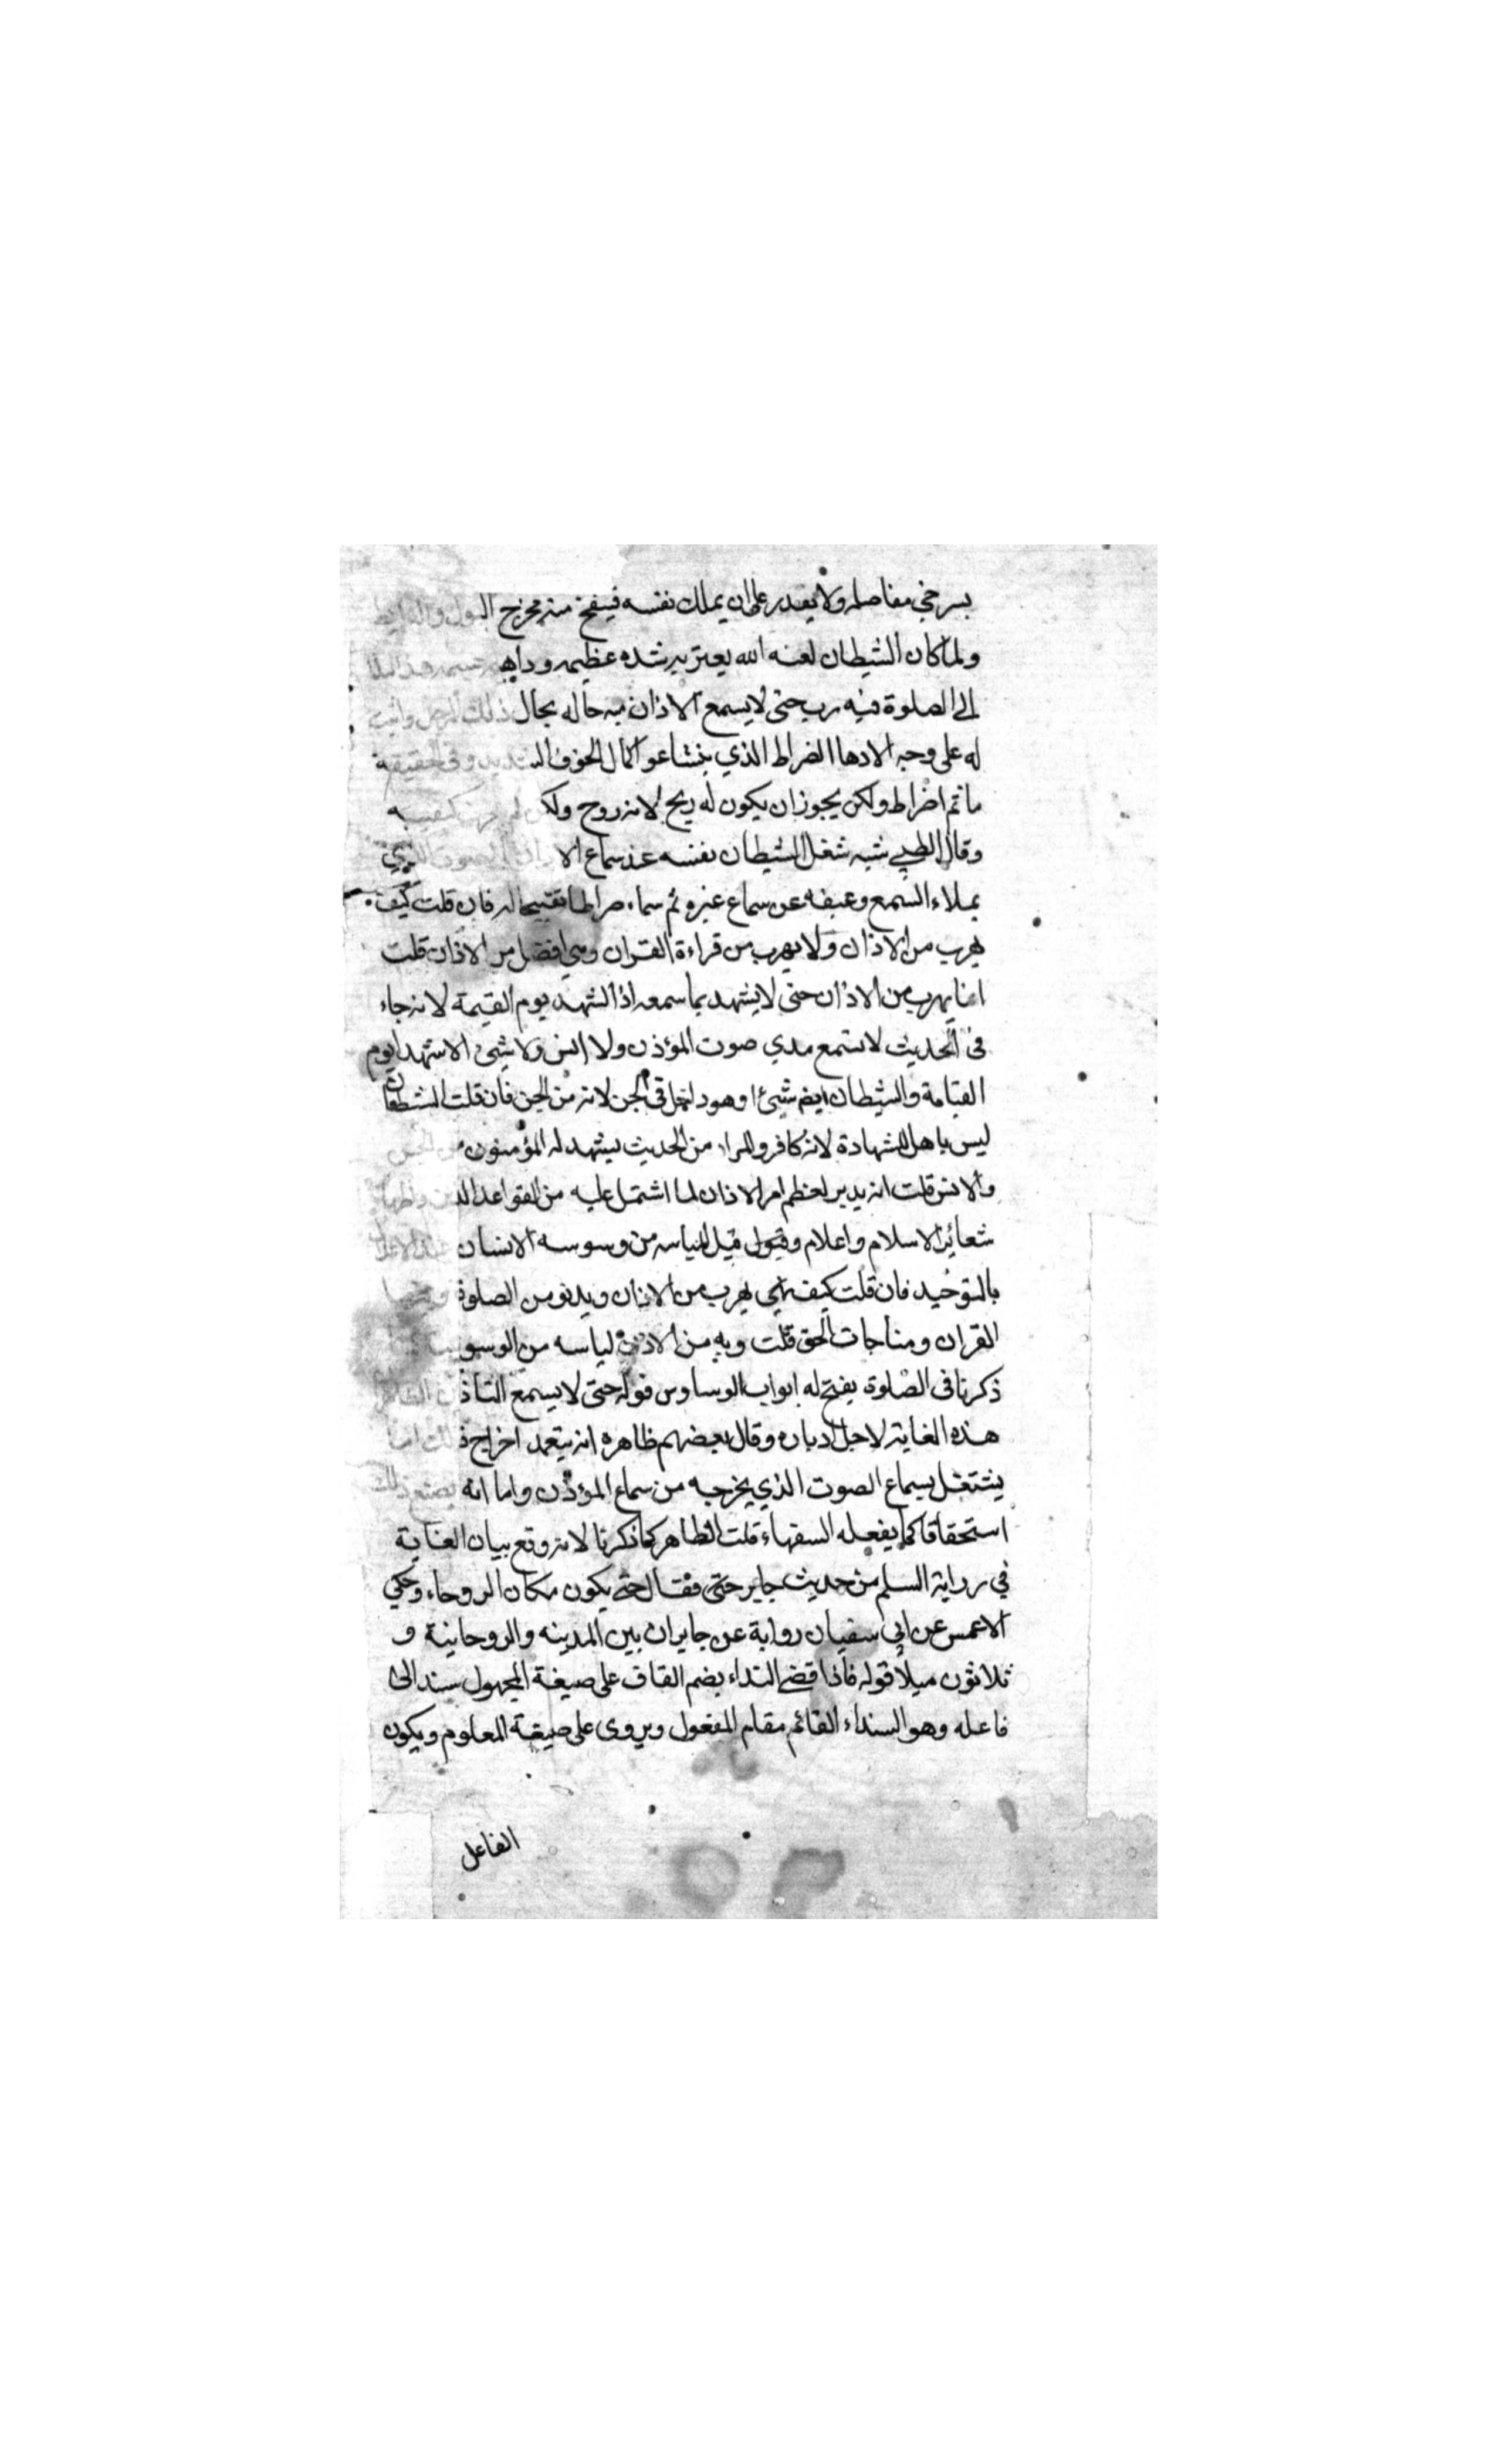 يسرخي مفاصله ولا يقدر على ان يملك نفسه فينفتح منه مخرج البول والغايط
ولما كان الشيطان لعنه الله يعتريه شده عظيمه وداهيه
الى الصلوة فيه رب حتى لا يسمع الاذان شبه حاله بحال ذلك الرجل واثبت
له على وجه الادعا الضراط الذي ينشا عن كمال الخوف الشديد وفى الحقيقة
ما ثم اضراط ولكن يجوز ان يكون له ريح لانه روح ولكن
وقال الطيبي شبه شغل الشيطان نفسه عند سماع الاذان بالصوت الذي
يملاء السمع وعيفه عن سماع غيره ثم سماه ضراطا تقبيحا له فان قلت كيف
يهرب من الاذان ولا يهرب من قراءة القران وهي افضل من الاذان قلت
انما يهرب من الاذان حتى لا يشهد بما سمعه اذا الشهد يوم القيمة لانه جاء
فى الحديث لا ستمع مدي صوت المؤذن ولا انس ولا شيئ الا شهد له يوم
القيامة والشيطان ايضم شيئ اوهو داخل في الجن لانه من الجن فان قلت الشيطان
ليس باهل للشهادة لانه كافر والمراد من الحديث يشهد له المؤمنون من الجن
والانس قلت انه يدبر لعظم امر الاذان لما اشتمل عليه من القواعد الدين واظهار
شعائر الاسلام واعلام وقبول قيل لياسه من وسوسه الانسان عند الاعلان
بالتوحيد فان قلت كيف يهرب من الاذان ويدنو من الصلوة
القران ومناجات الحق قلت وبه من الاذان لياسه من الوسوسة
ذكرنا فى الصلوة يفتح له ابواب الوساوس قوله حتى لا يسمع التاذين الظاهر
هذه الغاية لاجل ادباره وقال بعضهم ظاهره انه يتعمد اخراج ذلك اما
يشتغل بسماع الصوت الذي يخرجه من سماع المؤذن واما انه يصنع ذلك
استحقاقا كما يفعله السفهاء قلت الظاهر كما ذكرنا لانه وقع بيان الغاية
في رداية السلم من حديث جابر حتى فقال حتى يكون مكان الروحاء وحكي
الاعمس عن ابي سفيان رواية عن جابر ان بين المدينه والروحانية و
ثلاثون ميلا قوله فاذا قضي النداء بضم القاف على صيغة المجهول سند الى
فاعله وهو السنداء القائم مقام المفعول ويروى على صيغة المعلوم ويكون
الفاعل